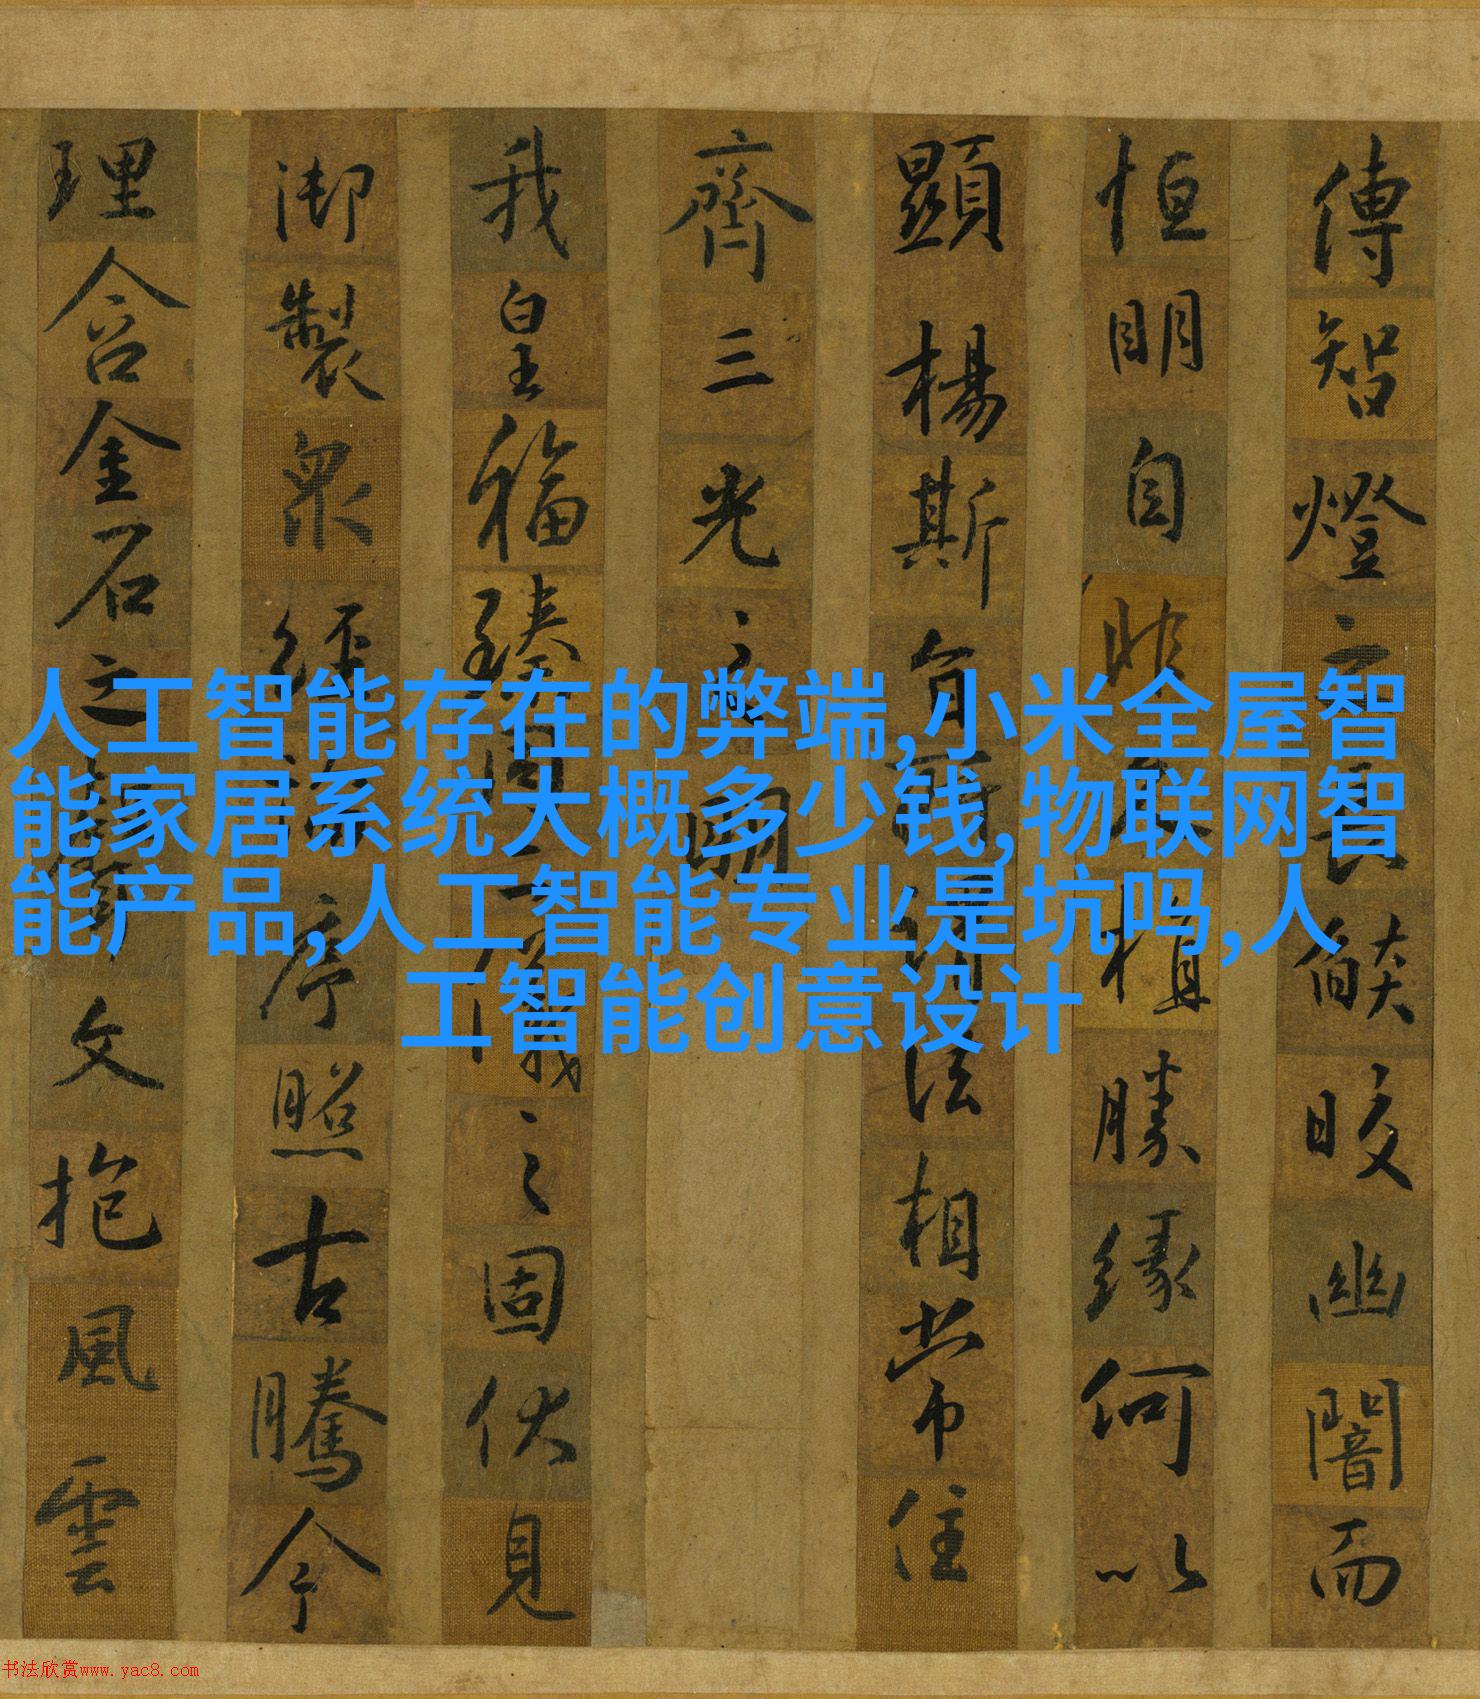 傳智燈之長燄皎幽闇而
恒明自非久植勝緣何以
顯楊斯旨所謂法相常住
齊三光之明
我皇福臻同二儀之固伏見
御製衆經論序照古騰今
理含金石之聲文抱風雲
人工智能存在的弊端,小米全屋智
能家居系统大概多少钱,物联网智
能产品,人工智能专业是坑吗,人
工智能创意设计
书法欣赏www.yac8.com